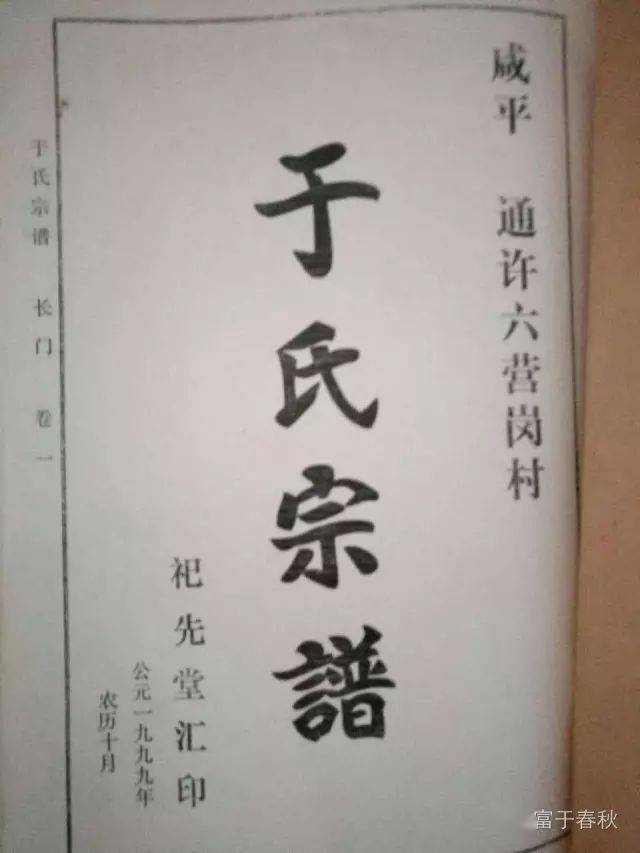 咸平 通许六营岗村
于氏宗譜
祀先堂汇印
公元一九九九年
农历十月
于氏宗谱 长门 卷一
富于春秋